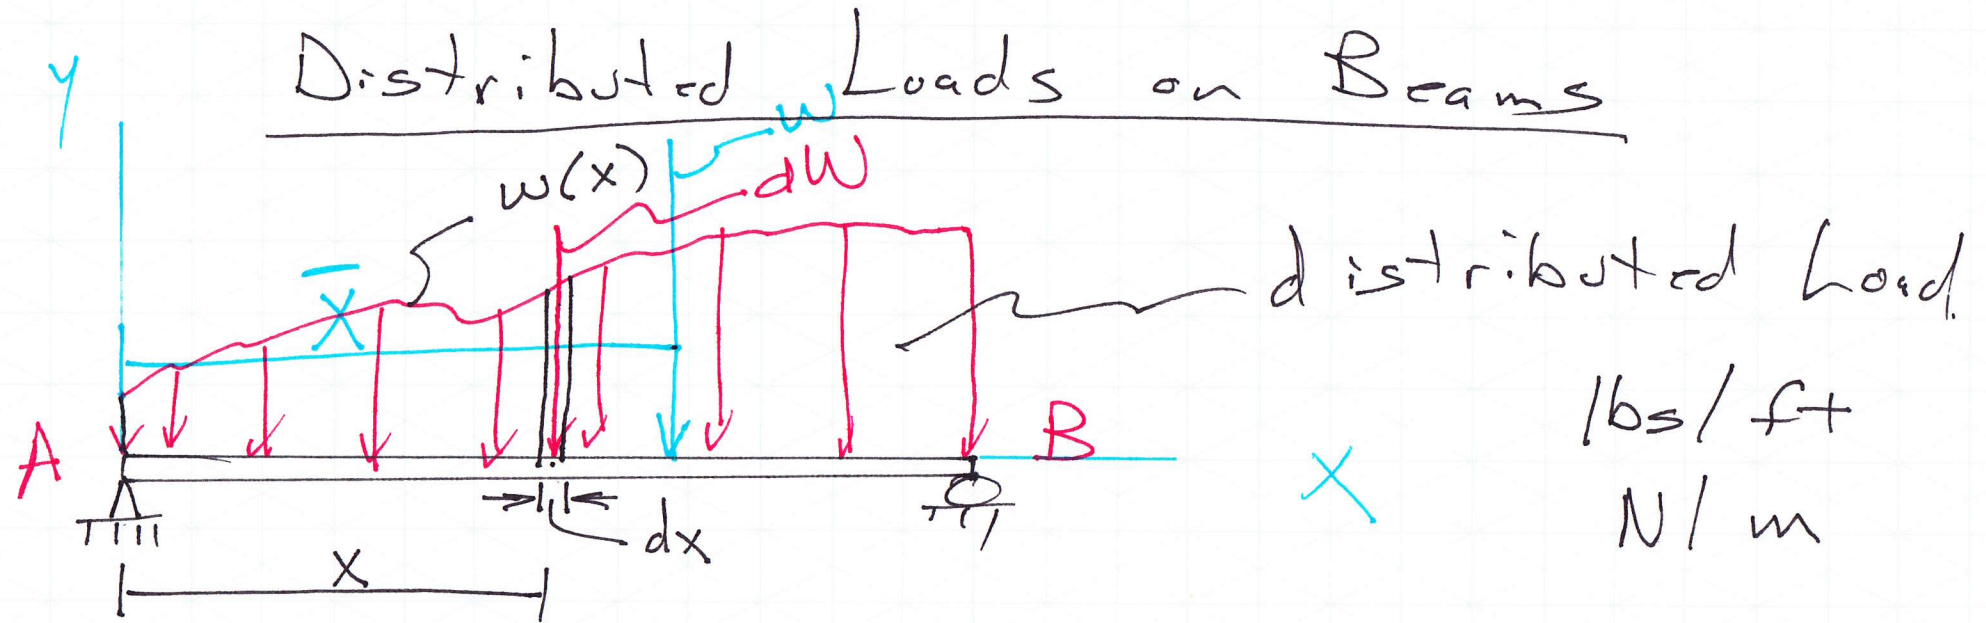 Distributed Loads on Beams
Y
W
w(x)
dW
x̄
distributed Load
A
B
X
lbs/ft
N/m
dx
x